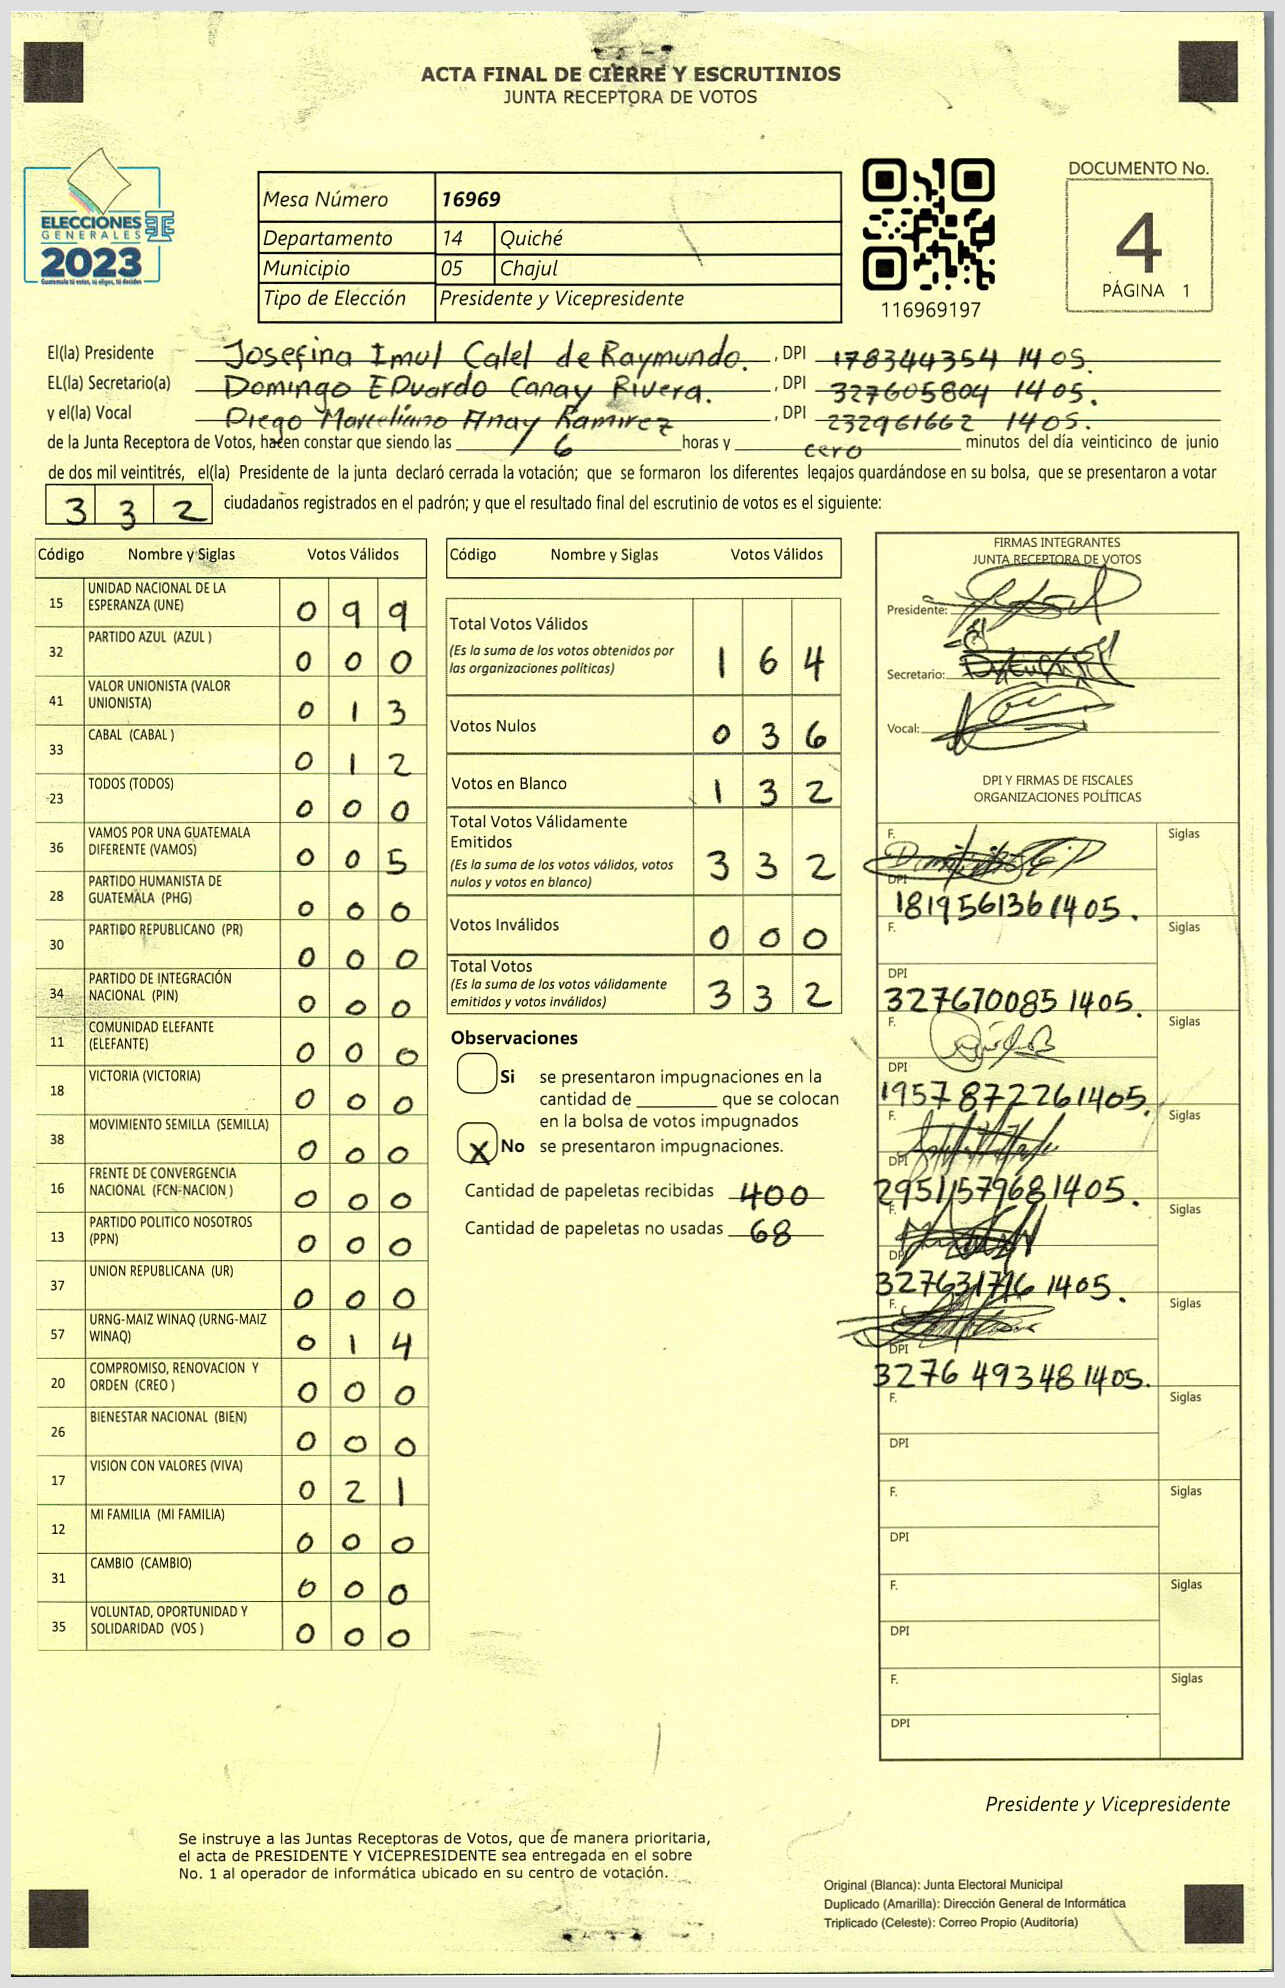 ACTA FINAL DE CIERRE Y ESCRUTINIOS
JUNTA RECEPTORA DE VOTOS
ELECCIONES
GENERALES
2023
Guatemala tú votas, tú eliges, tú decides
Mesa Número 16969
Departamento 14 Quiché
Municipio 05 Chajul
Tipo de Elección Presidente y Vicepresidente
116969197
DOCUMENTO No.
4
PÁGINA 1
El(la) Presidente Josefina Imul Calel de Raymundo. , DPI 178344354 1405.
EL(la) Secretario(a) Domingo EDuardo Canay Rivera. , DPI 327605804 1405.
y el(la) Vocal Diego Marceliano Anay Ramirez , DPI 232961662 1405.
de la Junta Receptora de Votos, hacen constar que siendo las 16 horas y cero minutos del día veinticinco de junio
de dos mil veintitrés, el(la) Presidente de la junta declaró cerrada la votación; que se formaron los diferentes legajos guardándose en su bolsa, que se presentaron a votar
332 ciudadanos registrados en el padrón; y que el resultado final del escrutinio de votos es el siguiente:
Código Nombre y Siglas Votos Válidos
15 UNIDAD NACIONAL DE LA ESPERANZA (UNE) 0 9 9
32 PARTIDO AZUL (AZUL ) 0 0 0
41 VALOR UNIONISTA (VALOR UNIONISTA) 0 1 3
33 CABAL (CABAL ) 0 1 2
23 TODOS (TODOS) 0 0 0
36 VAMOS POR UNA GUATEMALA DIFERENTE (VAMOS) 0 0 5
28 PARTIDO HUMANISTA DE GUATEMALA (PHG) 0 0 0
30 PARTIDO REPUBLICANO (PR) 0 0 0
34 PARTIDO DE INTEGRACIÓN NACIONAL (PIN) 0 0 0
11 COMUNIDAD ELEFANTE (ELEFANTE) 0 0 0
18 VICTORIA (VICTORIA) 0 0 0
38 MOVIMIENTO SEMILLA (SEMILLA) 0 0 0
16 FRENTE DE CONVERGENCIA NACIONAL (FCN-NACION ) 0 0 0
13 PARTIDO POLITICO NOSOTROS (PPN) 0 0 0
37 UNION REPUBLICANA (UR) 0 0 0
57 URNG-MAIZ WINAQ (URNG-MAIZ WINAQ) 0 1 4
20 COMPROMISO, RENOVACION Y ORDEN (CREO ) 0 0 0
26 BIENESTAR NACIONAL (BIEN) 0 0 0
17 VISION CON VALORES (VIVA) 0 2 1
12 MI FAMILIA (MI FAMILIA) 0 0 0
31 CAMBIO (CAMBIO) 0 0 0
35 VOLUNTAD, OPORTUNIDAD Y SOLIDARIDAD (VOS ) 0 0 0
Código Nombre y Siglas Votos Válidos
Total Votos Válidos
(Es la suma de los votos obtenidos por
las organizaciones políticas) 1 6 4
Votos Nulos 0 3 6
Votos en Blanco 1 3 2
Total Votos Válidamente
Emitidos
(Es la suma de los votos válidos, votos
nulos y votos en blanco) 3 3 2
Votos Inválidos 0 0 0
Total Votos
(Es la suma de los votos válidamente
emitidos y votos inválidos) 3 3 2
Observaciones
Si se presentaron impugnaciones en la
cantidad de ________ que se colocan
en la bolsa de votos impugnados
X No se presentaron impugnaciones.
Cantidad de papeletas recibidas 400
Cantidad de papeletas no usadas 68
FIRMAS INTEGRANTES
JUNTA RECEPTORA DE VOTOS
Presidente:
Secretario:
Vocal:
DPI Y FIRMAS DE FISCALES
ORGANIZACIONES POLÍTICAS
F. Siglas
DPI 1819561361405.
F. Siglas
DPI 327670085 1405.
F. Siglas
DPI 1957872261405.
F. Siglas
DPI 2951157968 1405.
F. Siglas
DPI 327631716 1405.
F. Siglas
DPI 3276 49348 1405.
F. Siglas
DPI
F. Siglas
DPI
F. Siglas
DPI
F. Siglas
DPI
Presidente y Vicepresidente
Se instruye a las Juntas Receptoras de Votos, que de manera prioritaria,
el acta de PRESIDENTE Y VICEPRESIDENTE sea entregada en el sobre
No. 1 al operador de informática ubicado en su centro de votación.
Original (Blanca): Junta Electoral Municipal
Duplicado (Amarilla): Dirección General de Informática
Triplicado (Celeste): Correo Propio (Auditoría)